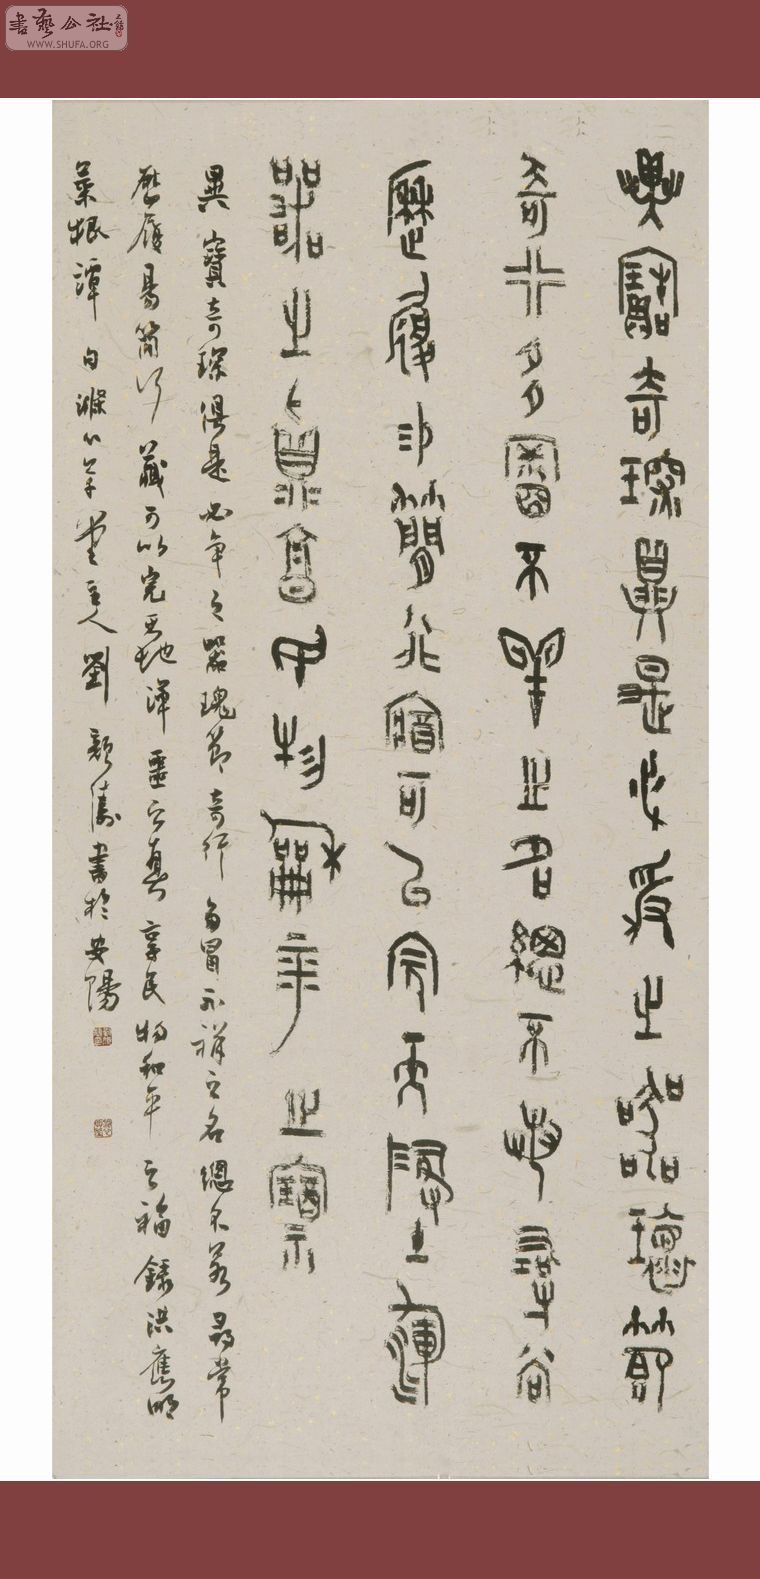 書藝公社
WWW.SHUFA.ORG
異寶奇琛具是必爭之器瑰節
奇行多冒不祥之名總不若尋常
歷履易簡行藏可以完天地渾
噩之真享民物龢平之福
異寶奇琛俱是必爭之器瑰節奇行多冒不祥之名總不若尋常
歷履易簡行藏可以完天地渾噩之真享民物和平之福錄洪應明
菜根譚句滌心草堂主人劉顏濤書於安陽